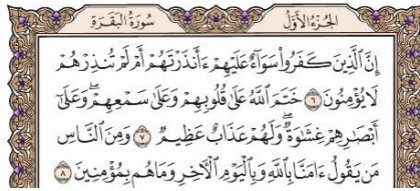 الجُزْءُ الأَوَّلُ
سُورَةُ البَقَرَةِ
إِنَّ ٱلَّذِينَ كَفَرُوا۟ سَوَآءٌ عَلَيْهِمْ ءَأَنذَرْتَهُمْ أَمْ لَمْ تُنذِرْهُمْ
لَا يُؤْمِنُونَ ٦ خَتَمَ ٱللَّهُ عَلَىٰ قُلُوبِهِمْ وَعَلَىٰ سَمْعِهِمْ ۖ وَعَلَىٰٓ
أَبْصَٰرِهِمْ غِشَٰوَةٌ ۖ وَلَهُمْ عَذَابٌ عَظِيمٌ ٧ وَمِنَ ٱلنَّاسِ
مَن يَقُولُ ءَامَنَّا بِٱللَّهِ وَبِٱلْيَوْمِ ٱلْءَاخِرِ وَمَا هُم بِمُؤْمِنِينَ ٨